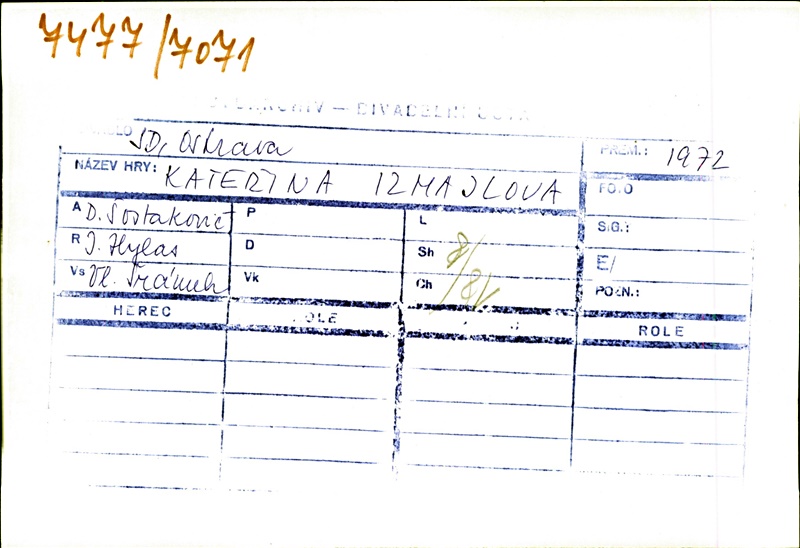 7477/7071
— DIVADELNÍ
SD, Ostrava
PREM.: 1972
NÁZEV HRY: KATEŘINA IZMAJLOVA
FOTO
A D. Šostakovič P L S.G.:
R I. Hylas D Sh E/
Vs Vl. Šrámek Vk Ch POZN.:
8/81
HEREC ROLE ROLE